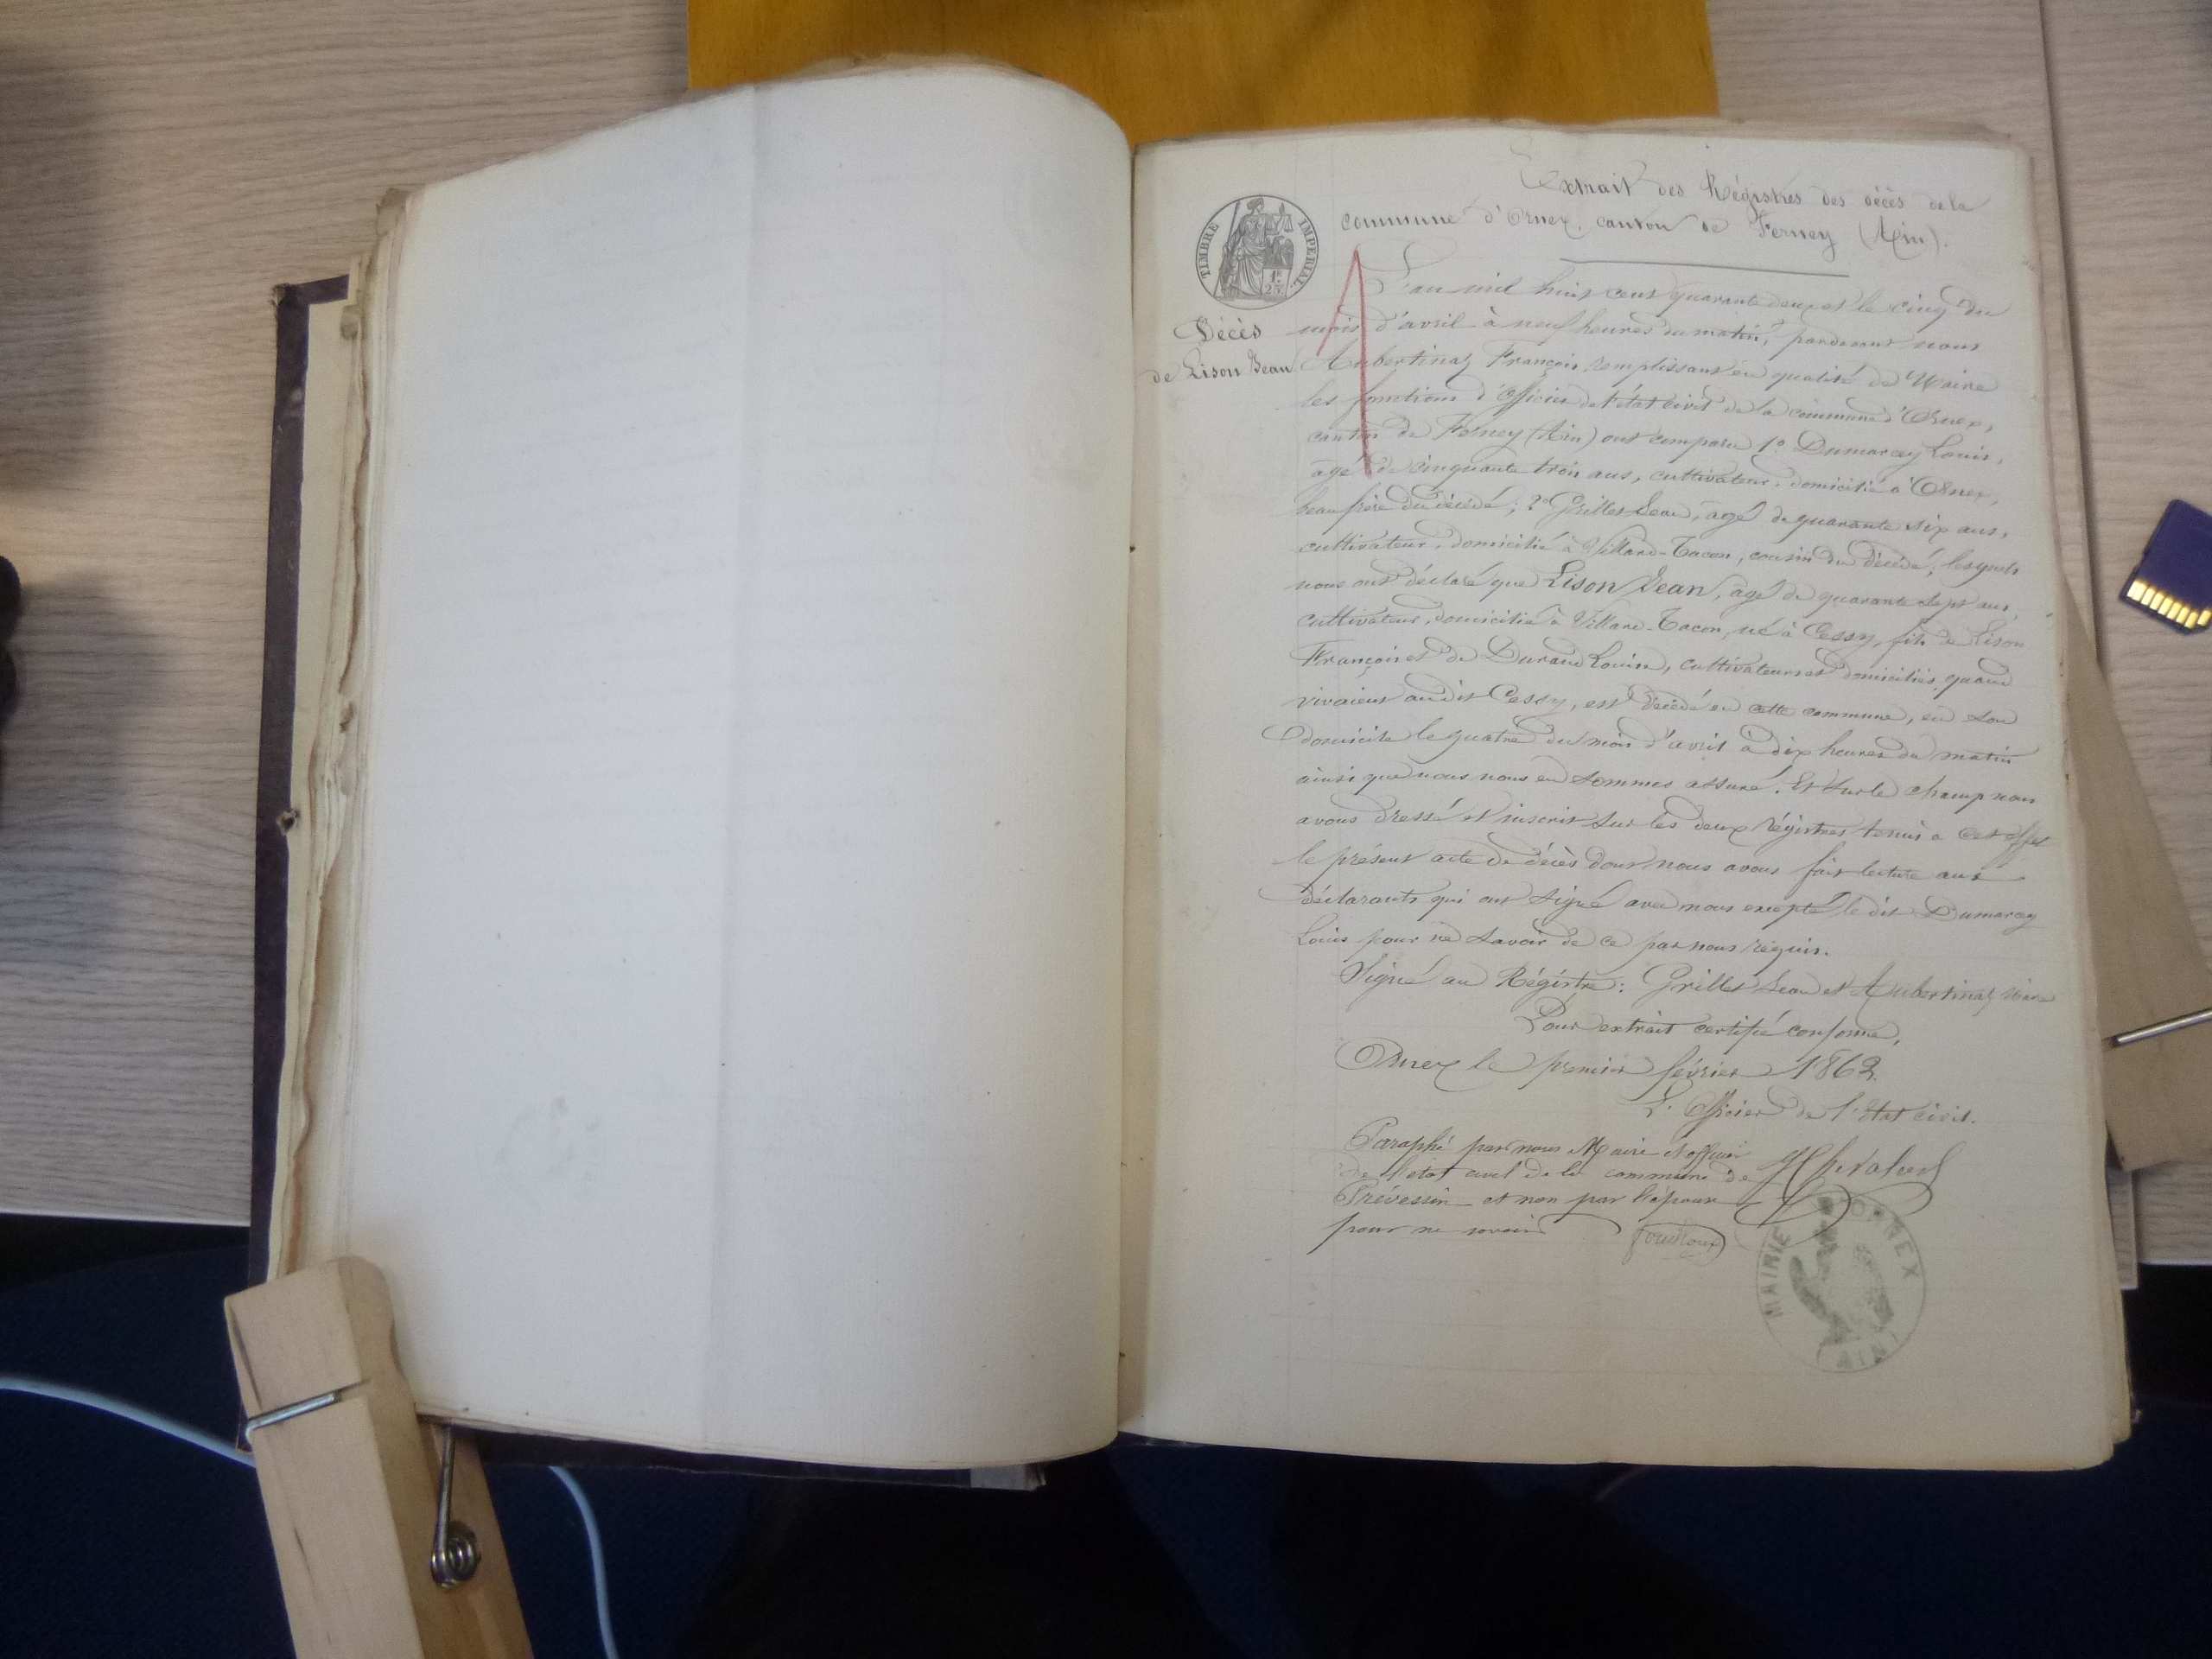 Extrait des Régistres des décès de la
commune d'Ornex, canton de Ferney (Ain).
TIMBRE IMPERIAL
1F
25c
Décès
de Lison Jean
L'an mil huit cent quarante deux et le cinq du
mois d'avril à neuf heures du matin, pardevant nous
Aubertinaz François remplissant en qualité de Maire
les fonctions d'officier de l'état civil de la commune d'Ornex,
canton de Ferney (Ain) ont comparu 1o Dumarcey Louis,
âgé de cinquante trois ans, cultivateur, domicilié à Ornex,
beau frère du décédé; 2o Grillet Jean, âgé de quarante six ans,
cultivateur, domicilié à Villard-Tacon, cousin du décédé; lesquels
nous ont déclaré que Lison Jean, âgé de quarante sept ans,
cultivateur, domicilié à Villard-Tacon, né à Cessy, fils de Lison
François et de Durand Louise, cultivateurs et domiciliés quand
vivaient audit Cessy, est décédé en cette commune, en son
domicile le quatre du mois d'avril à dix heures du matin
ainsi que nous nous en sommes assuré. Et sur le champ nous
avons dressé et inscrit sur les deux régistres tenus à cet effet
le présent acte de décès dont nous avons fait lecture aux
déclarants qui ont signé avec nous excepté le dit Dumarcey
Louis pour ne savoir de ce par nous requis.
Signé au Régistre: Grillet Jean et Aubertinaz Maire
Pour extrait certifié conforme,
Ornex le premier février 1862.
L'officier de l'Etat civil.
Paraphé par nous Maire et officier
de l'état civil de la commune de
Prévessin et non par l'époux
pour ne savoir
MAIRIE D'ORNEX
AIN